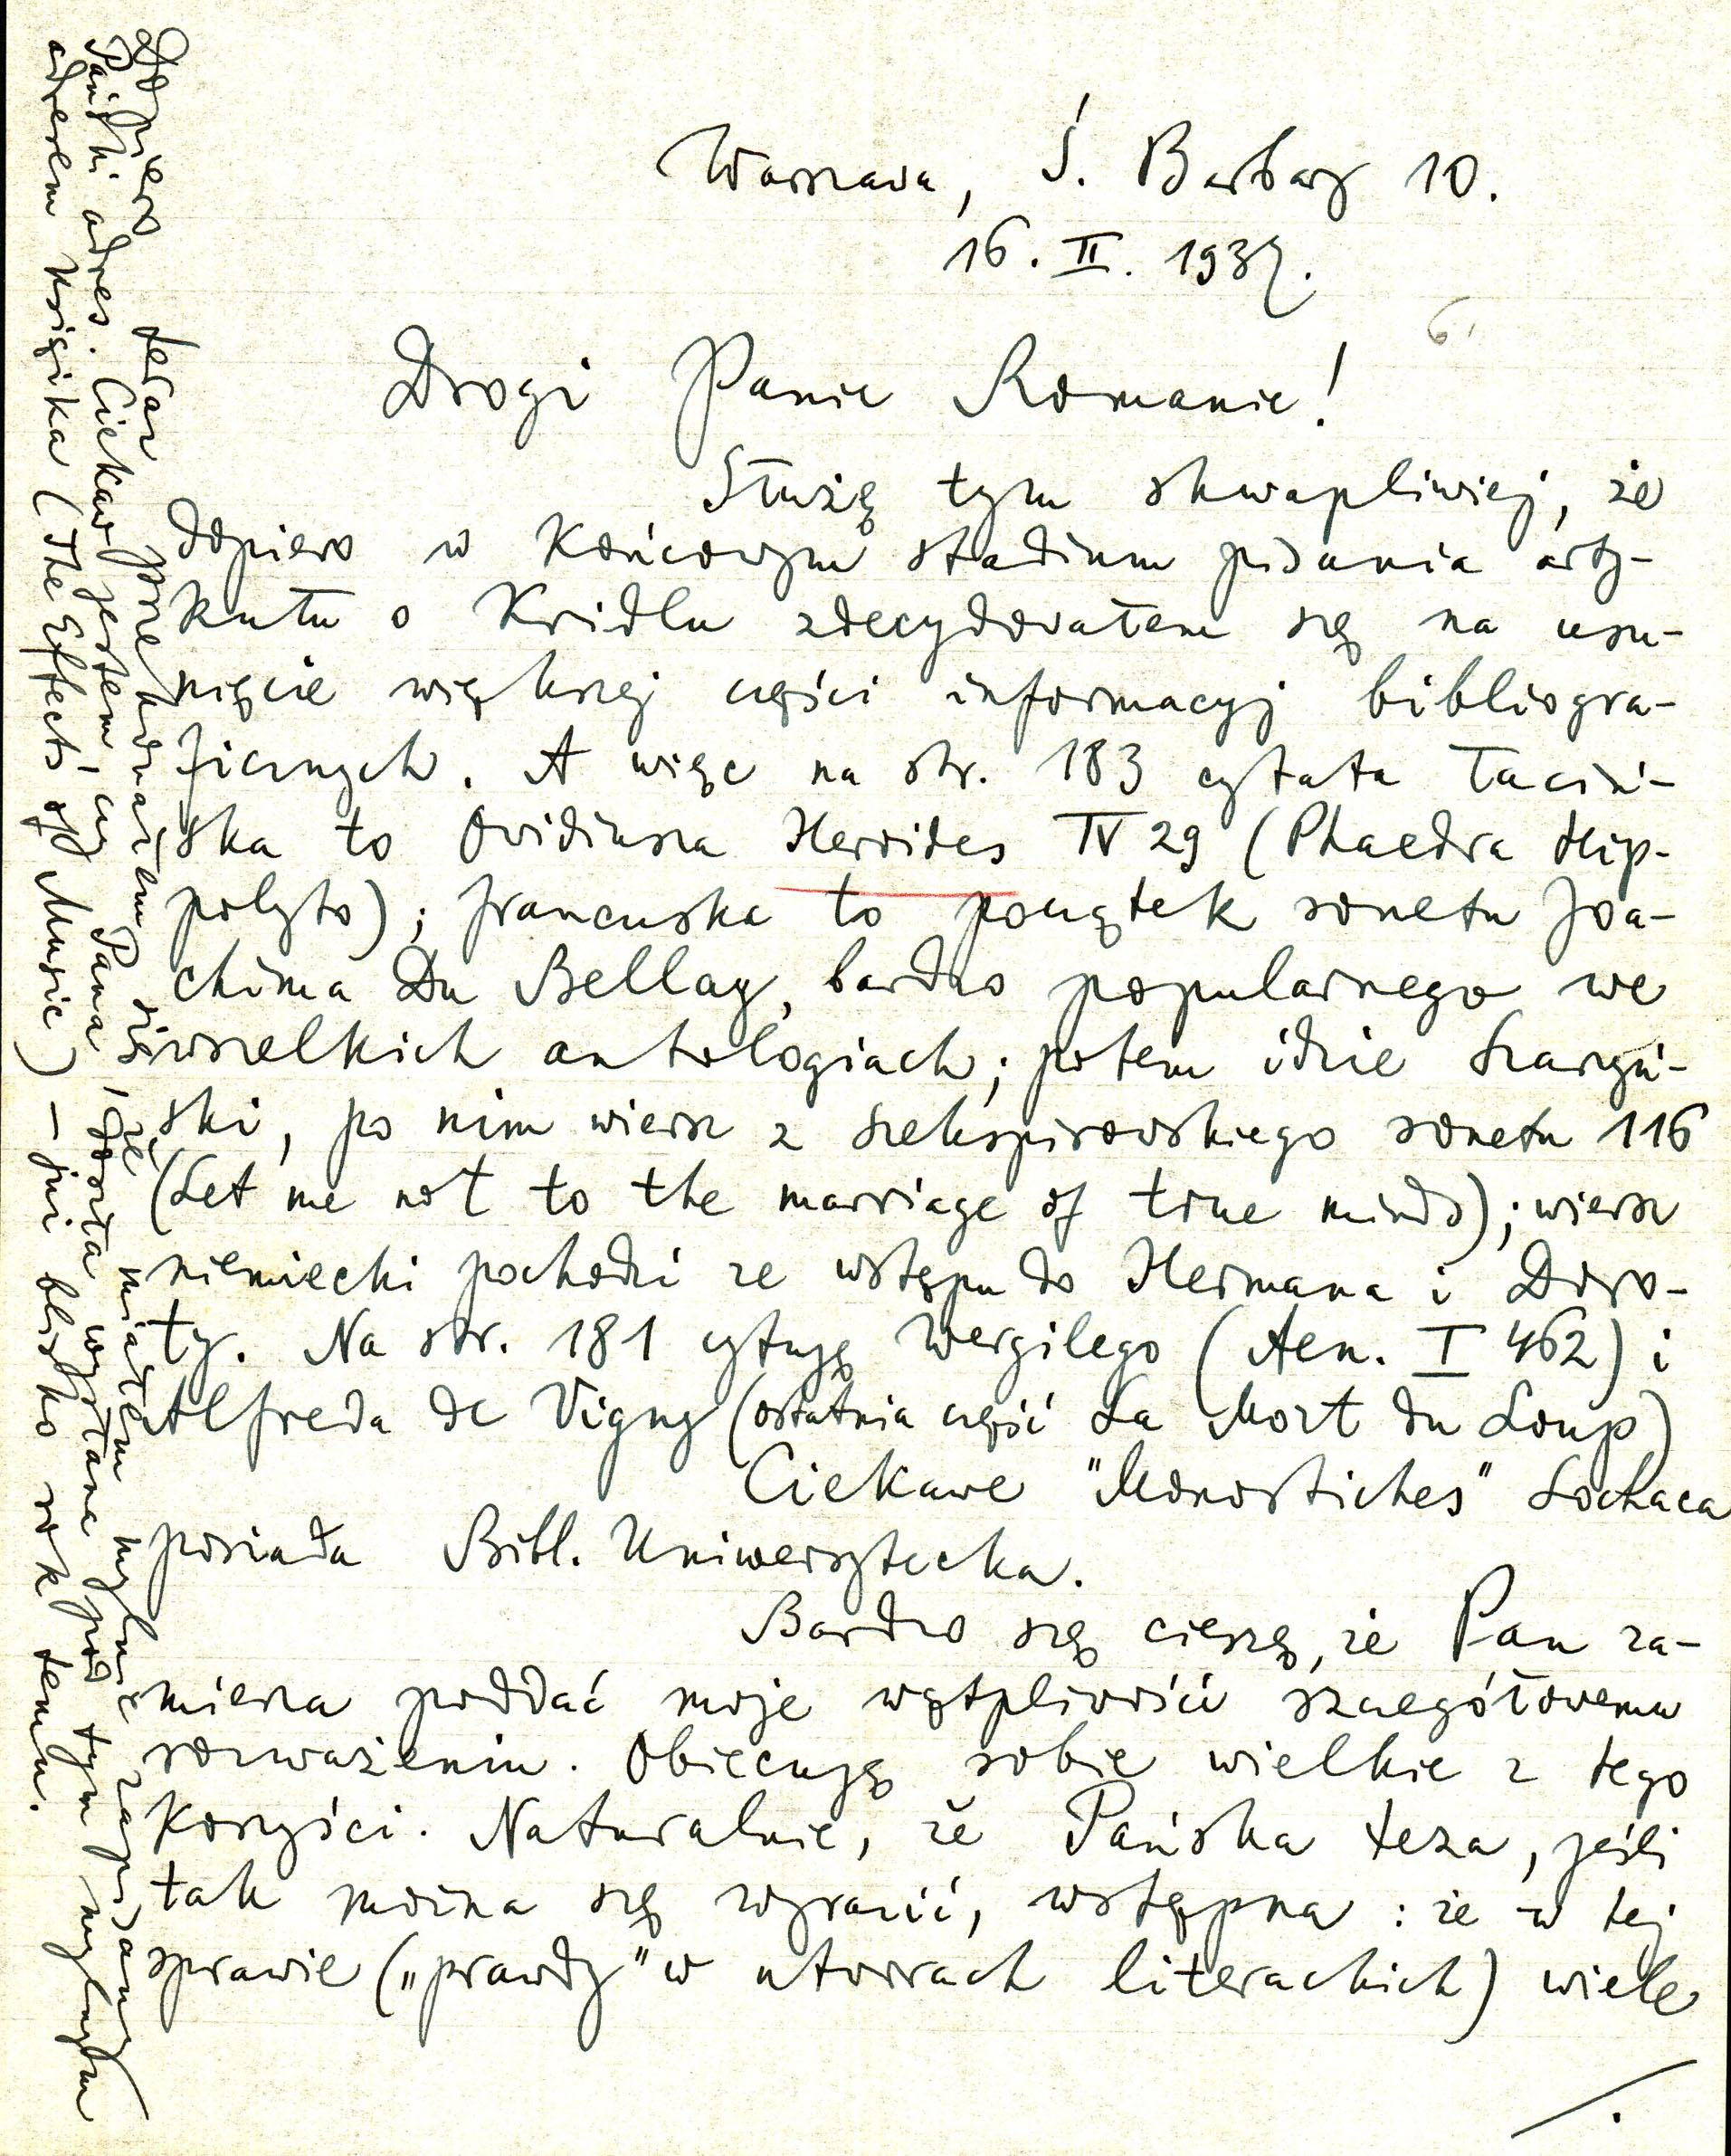 Warszawa, Ś. Barbary 10.
16. II. 1937.
Drogi Panie Romanie!
Służę tym skwapliwiej, że
dopiero w końcowym stadium pisania arty-
kułu o Kridlu zdecydowałem się na usu-
nięcie większej części informacyj bibliogra-
ficznych. A więc na str. 183 cytata łaciń-
ska to Ovidiusza Heroides IV 29 (Phaedra Hip-
polyto); francuska to początek sonetu Joa-
chima Du Bellay, bardzo popularnego we
wszelkich antologiach; potem idzie Szarzyń-
ski, po nim wiersz z szekspirowskiego sonetu 116
(Let me not to the marriage of true minds); wiersz
niemiecki pochodzi ze wstępu do Hermana i Doro-
ty. Na str. 181 cytuję Wergilego (Aen. I 462) i
Alfreda de Vigny (ostatnia część La Mort du Loup)
Ciekawe "Monostiches" Lochaca
posiada Bibl. Uniwersytecka.
Bardzo się cieszę, że Pan za-
mierza poddać moje wątpliwości szczegółowemu
rozważeniu. Obiecuję sobie wielkie z tego
korzyści. Naturalnie, że Pańska teza, jeśli
tak można się wyrazić, wstępna: że w tej
sprawie („prawdy" w utworach literackich) wiele
./.
Dopiero teraz przekonałem się, że miałem mylnie zapisany
Pański adres. Ciekaw jestem, czy Pana doszła wysłana pod tym mylnym
adresem książka (The Effects of Music) – już blisko rok temu.
6